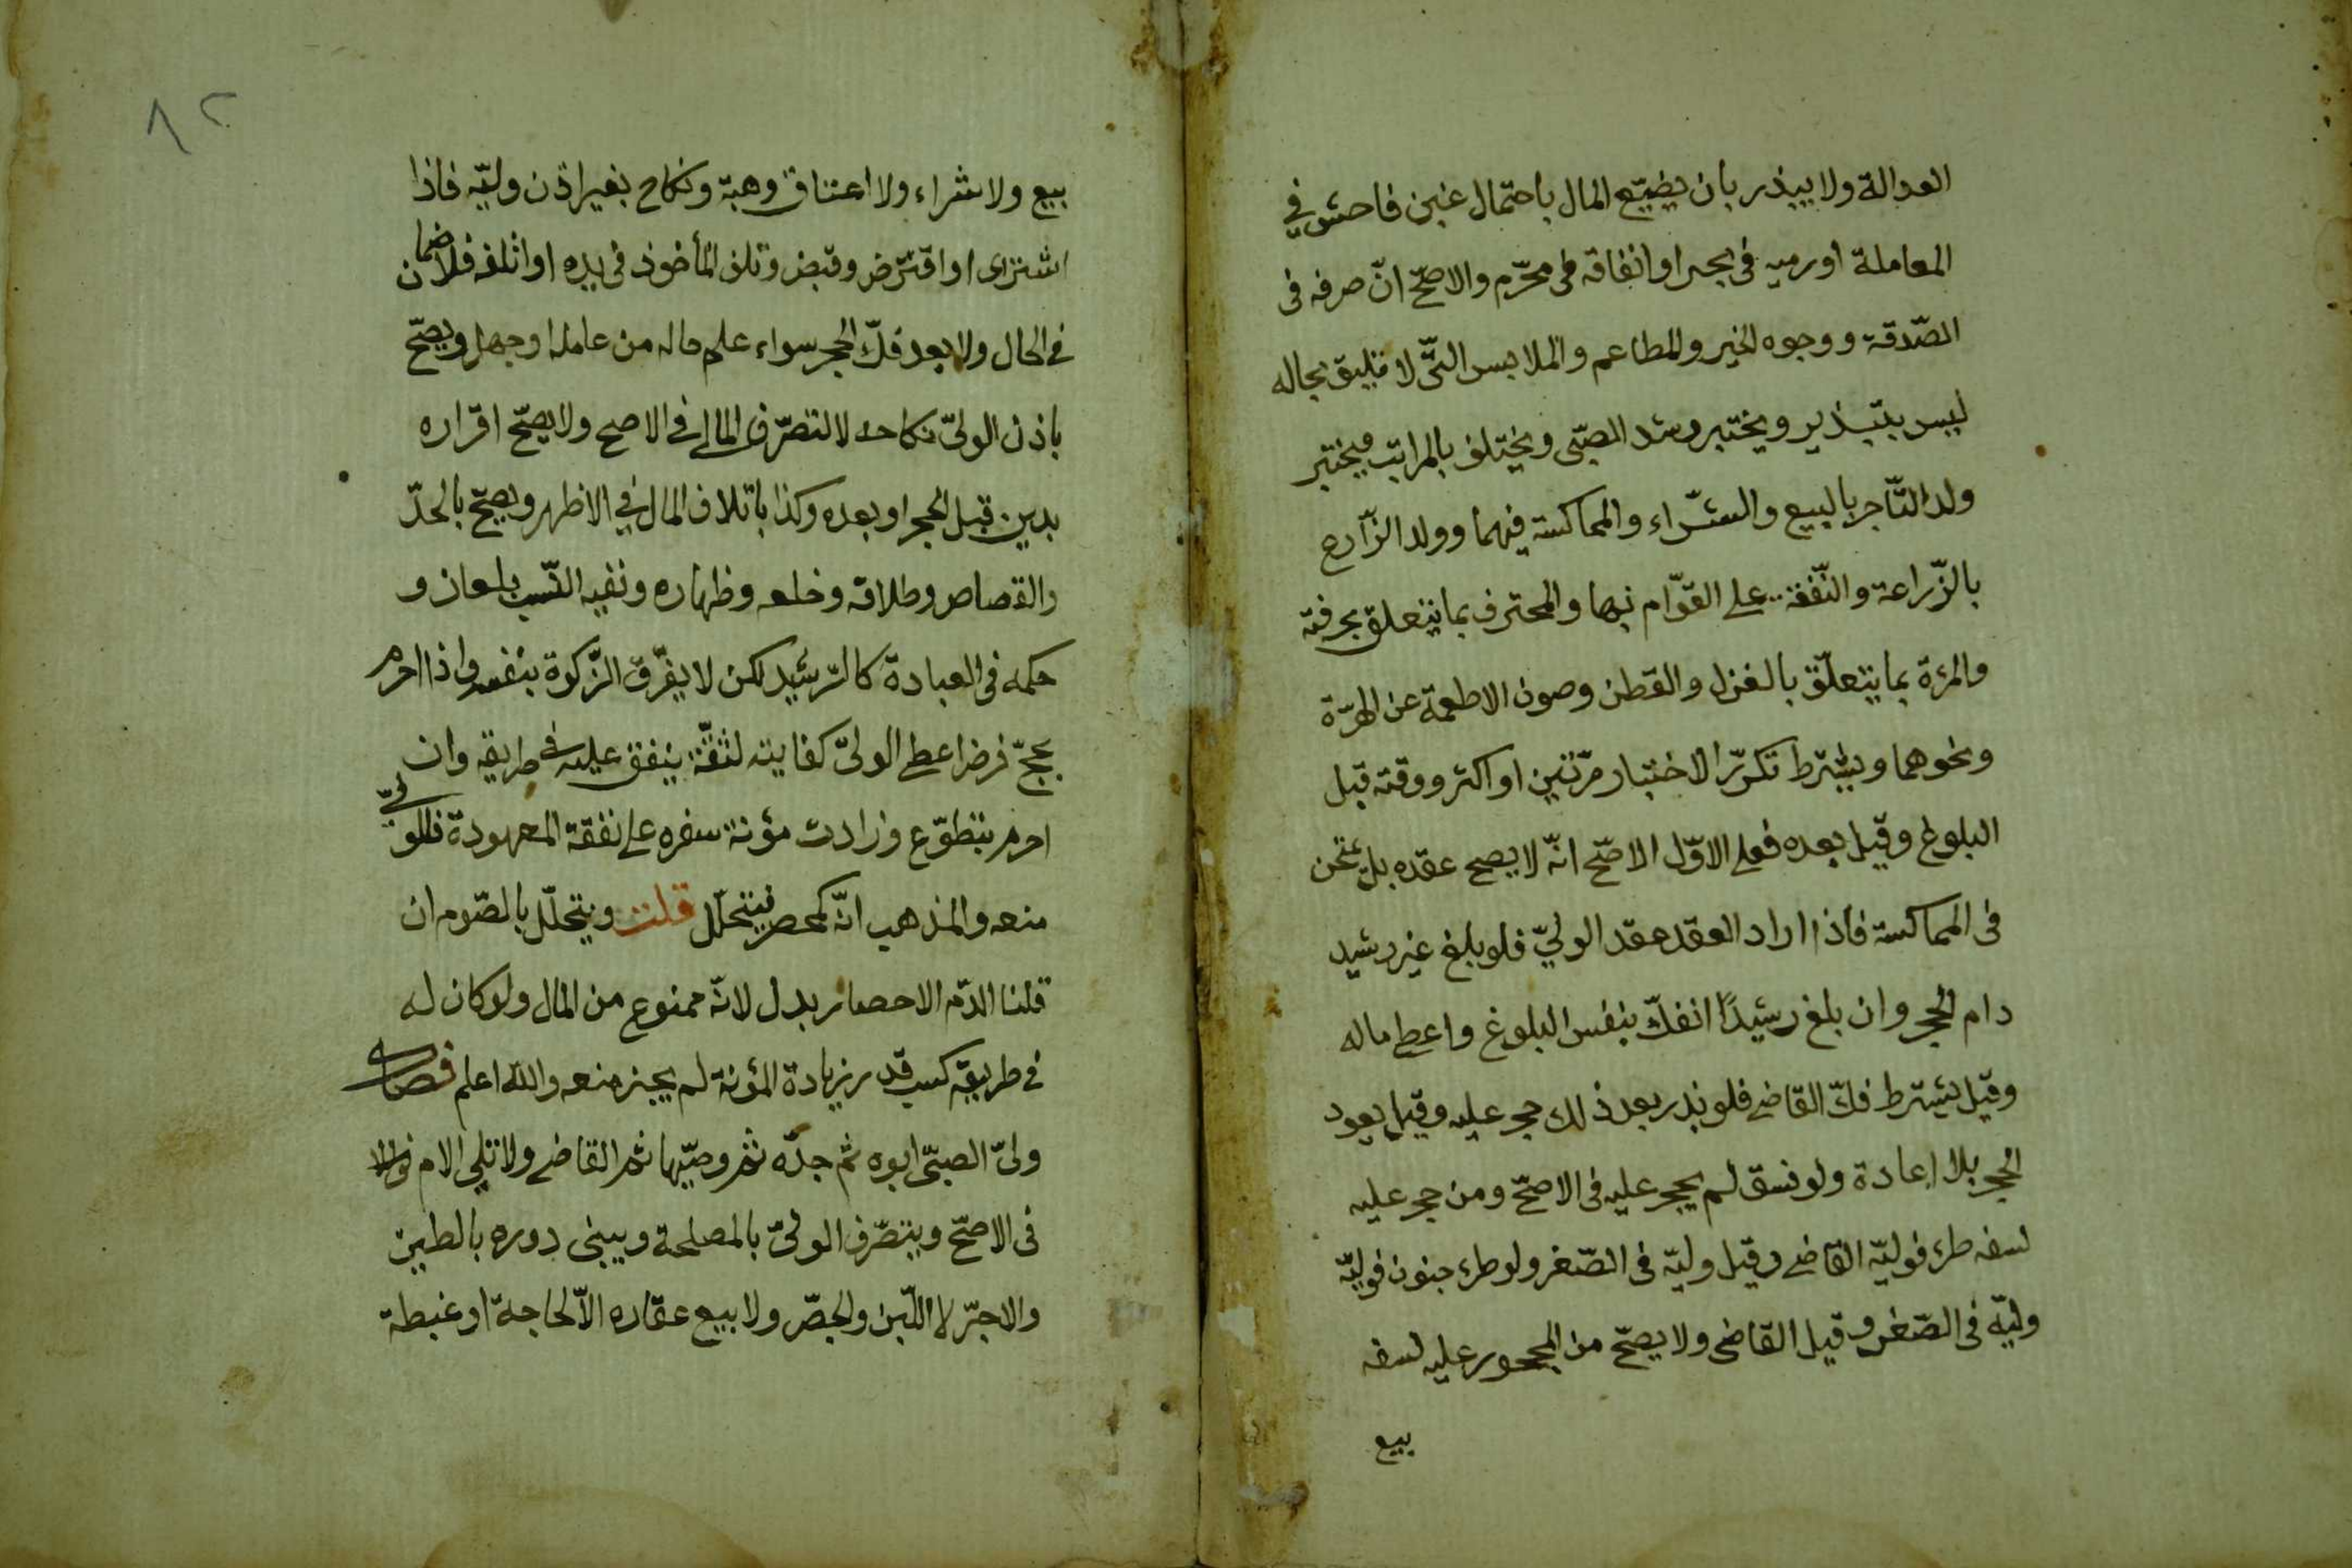 العدالة ولا يبذر بان يضيّع المال باحتمال غبن فاحش في
المعاملة او رميه في بحر او انفاقه في محرّم والاصحّ انّ صرفه في
الصّدقة ووجوه الخير والمطاعم والملابس التّى لا تليق بحاله
ليس بتبذير ويختبر رشد الصبّى ويختلف بالمراتب فيختبر
ولد التّاجر بالبيع والشّراء والمماكسة فيهما وولد الزّارع
بالزّراعة والنّفقة على القوّام بها والمحترف بما يتعلق بحرفته
والمرءة بما يتعلّق بالغزل والقطن وصون الاطعمة عن الهرّة
ونحوهما ويشترط تكرّر الاختبار مرّتين او اكثر ووقته قبل
البلوغ وقيل بعده فعلى الاوّل الاصّح انّه لا يصح عقده بل يمتحن
في المماكسة فاذا اراد العقد عقد الوليّ فلو بلغ غير رشيد
دام الحجر وان بلغ رشيدًا انفكّ بنفس البلوغ واعطى ماله
وقيل يشترط فكّ القاضى فلو بذر بعد ذلك حجر عليه وقيل يعود
الحجر بلا اعادة ولو فسق لم يحجر عليه في الاصحّ ومن حجر عليه
لسفه طرء فوليّه القاضى وقيل وليّه في الصّغر ولو طرء جنون فوليّه
وليّه في الصّغر وقيل القاضى ولا يصحّ من المحجور عليه لسفه
بيع
٨٢
بيع ولا شراء ولا اعتاق وهبة ونكاح بغير اذن وليّه فاذا
اشترى او اقترض وقبض وتلف المأخوذ في يده او اتلفه فلا ضمان
في الحال ولا بعد فكّ الحجر سواء علم حاله من عامله او جهل ويصحّ
باذن الولىّ نكاحه لا لتصرّف المالى في الاصح ولا يصحّ اقراره
بدين قبل الحجر او بعده وكذا باتلاف المال في الاظهر ويصحّ بالحدّ
والقصاص وطلاقه وخلعه وظهاره ونفيه النّسب بلعان و
حكمه في العبادة كالرّشيد لكن لا يفرّق الزّكوة بنفسه واذا احرم
بحجّ فرض اعطى الولىّ كفايته لثقّة ينفق عليه في طريقه وان
احرم بتطوّع وزادت مؤنة سفره على نفقة المعهودة فللولىّ
منعه والمذهب انّه كمحصر فيتحلّل قلت ويتحلّل بالصّوم ان
قلنا الدّم الاحصار بدل لانّه ممنوع من المال ولو كان له
في طريقه كسب قدر زيادة المؤنة لم يجز منعه والله اعلم فصل
ولىّ الصبّى ابوه ثم جدّه ثم وصيّهما ثم القاضى ولا تلى الام
في الاصحّ ويتصّرف الولىّ بالمصلحة ويبنى دوره بالطين
والاجرّ لا اللّبن والجصّ ولا بيع عقاره الاّ لحاجة او غبطة